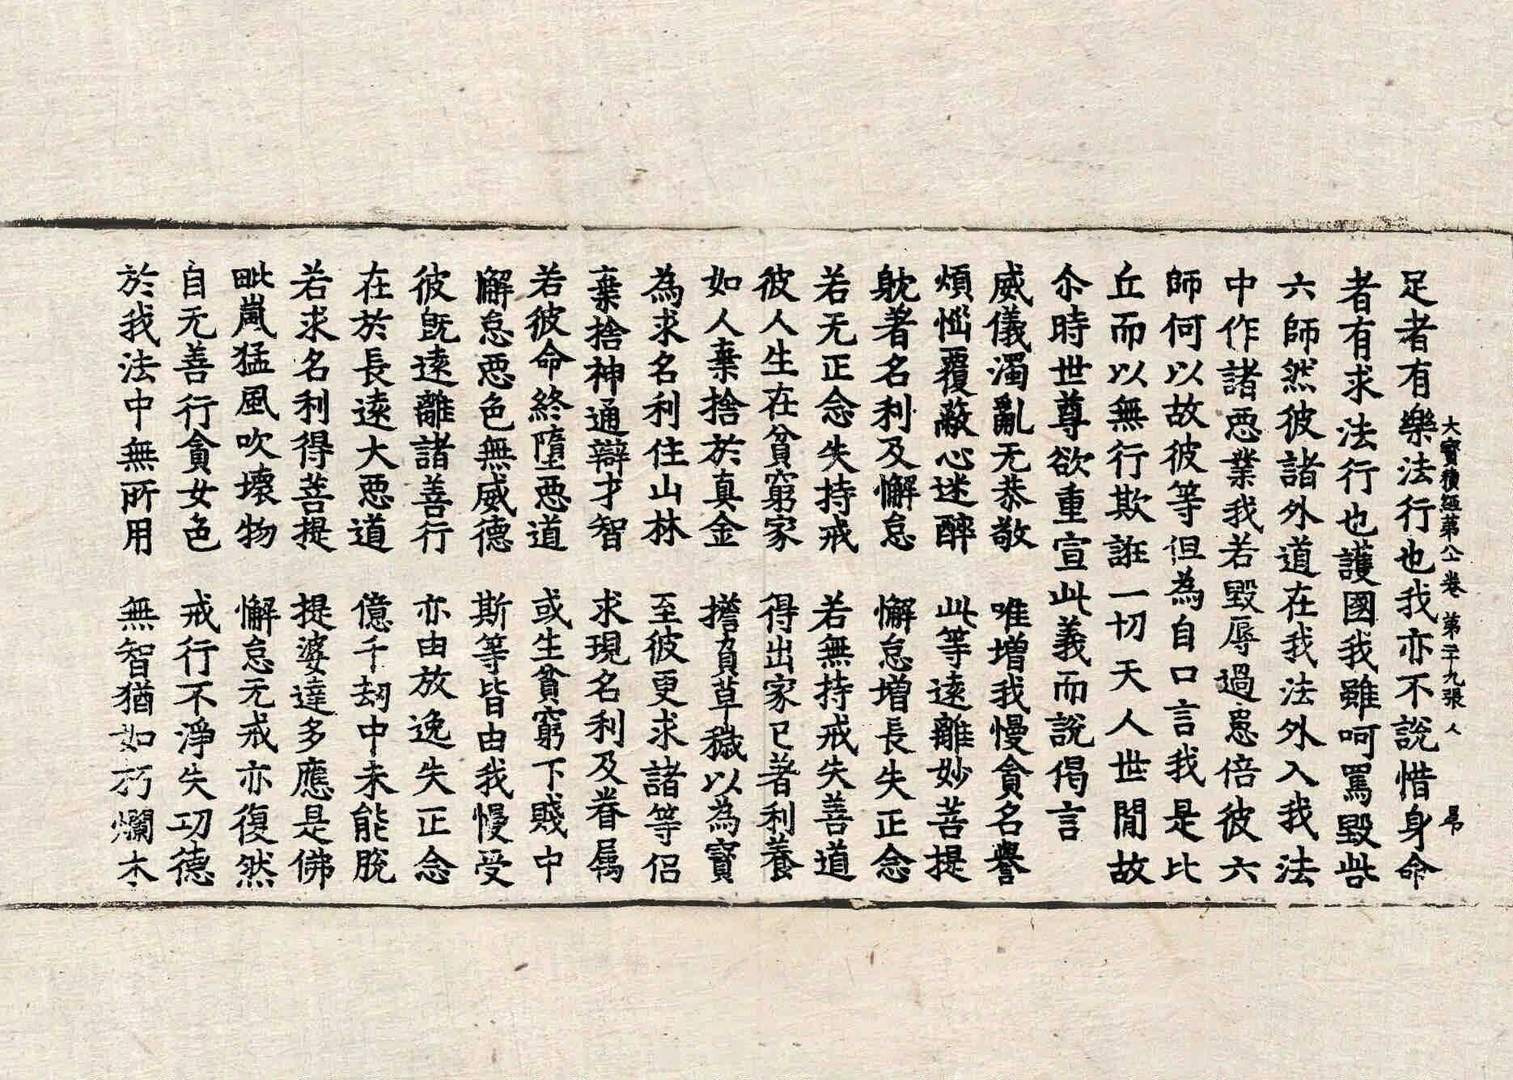 大寶積經第八十卷 第二十九張 人 帛
足者有樂法行也我亦不說惜身命
者有求法行也護國我雖呵罵毀呰
六師然彼諸外道在我法外入我法
中作諸惡業我若毀辱過患倍彼六
師何以故彼等但為自口言我是比
丘而以無行欺誑一切天人世間故
尒時世尊欲重宣此義而說偈言
威儀濁亂无恭敬 唯增我慢貪名譽
煩惱覆蔽心迷醉 此等遠離妙菩提
躭著名利及懈怠 懈怠增長失正念
若无正念失持戒 若無持戒失善道
彼人生在貧窮家 得出家已著利養
如人棄捨於真金 擔負草穢以為寶
為求名利住山林 至彼更求諸等侶
棄捨神通辯才智 求現名利及眷屬
若彼命終墮惡道 或生貧窮下賤中
懈怠惡色無威德 斯等皆由我慢受
彼既遠離諸善行 亦由放逸失正念
在於長遠大惡道 億千劫中未能脫
若求名利得菩提 提婆達多應是佛
毗嵐猛風吹壞物 懈怠无戒亦復然
自无善行貪女色 戒行不淨失功德
於我法中無所用 無智猶如朽爛木